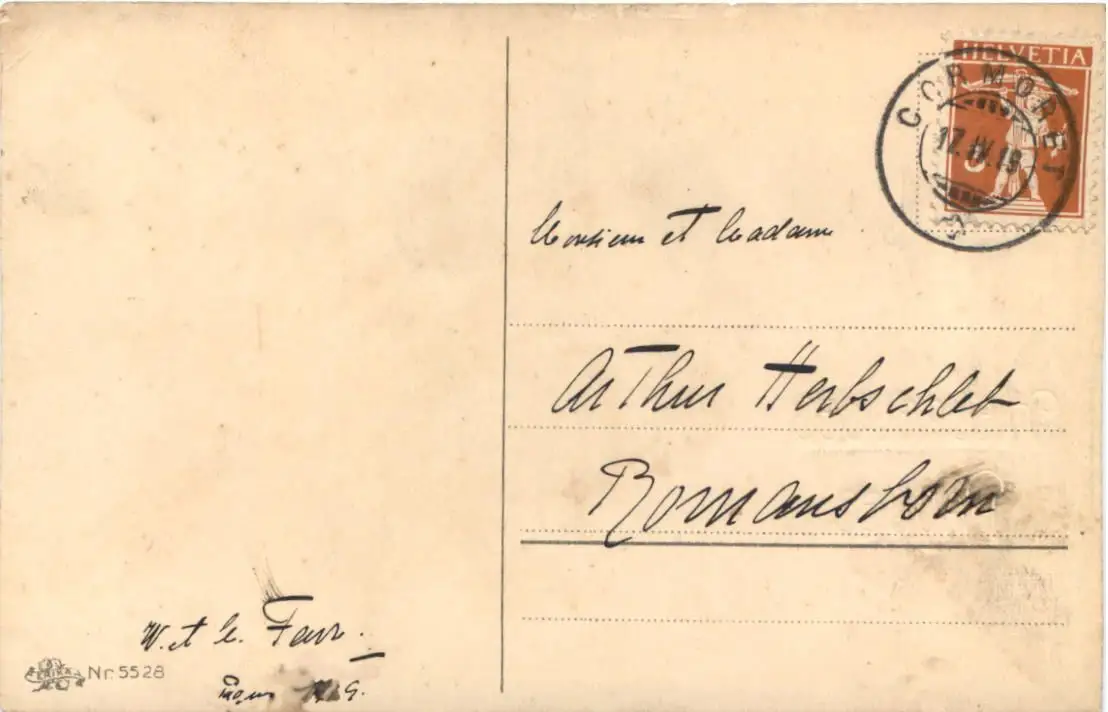 HELVETIA
CORMORET
17. IV. 19
Monsieur et Madame
Arthur Herbschleb
Romanshorn
W. et
ERIKA
Nr. 5528